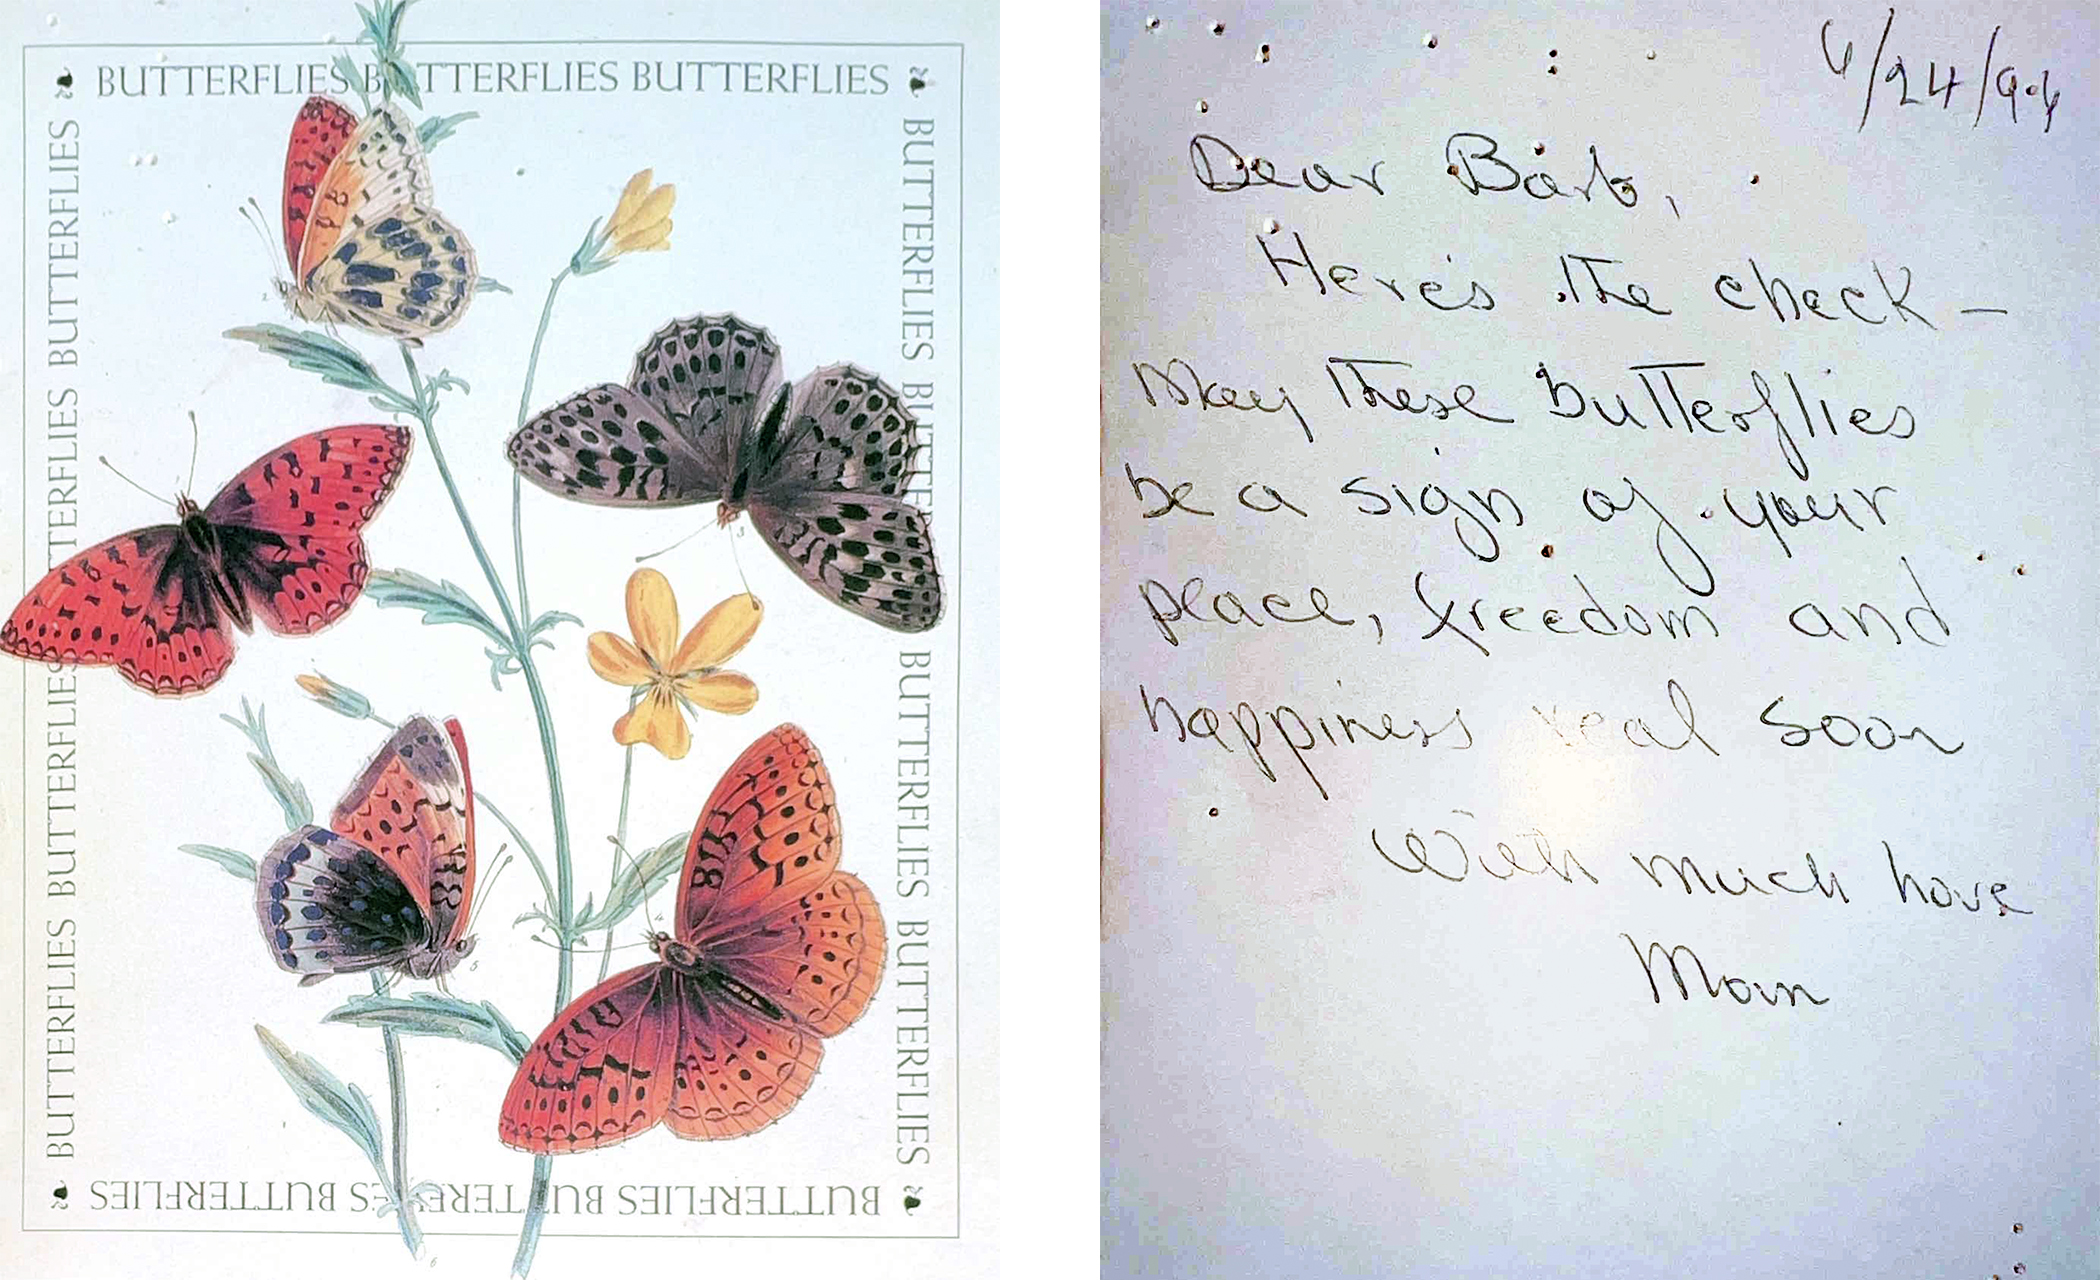 BUTTERFLIES BUTTERFLIES BUTTERFLIES
BUTTERFLIES BUTTERFLIES BUTTERFLIES BUTTERFLIES
BUTTERFLIES BUTTERFLIES BUTTERFLIES BUTTERFLIES
BUTTERFLIES BUTTERFLIES BUTTERFLIES
Dear Barb,
Here's the check –
May these butterflies
be a sign of your
peace, freedom and
happiness real soon
With much love
Mom